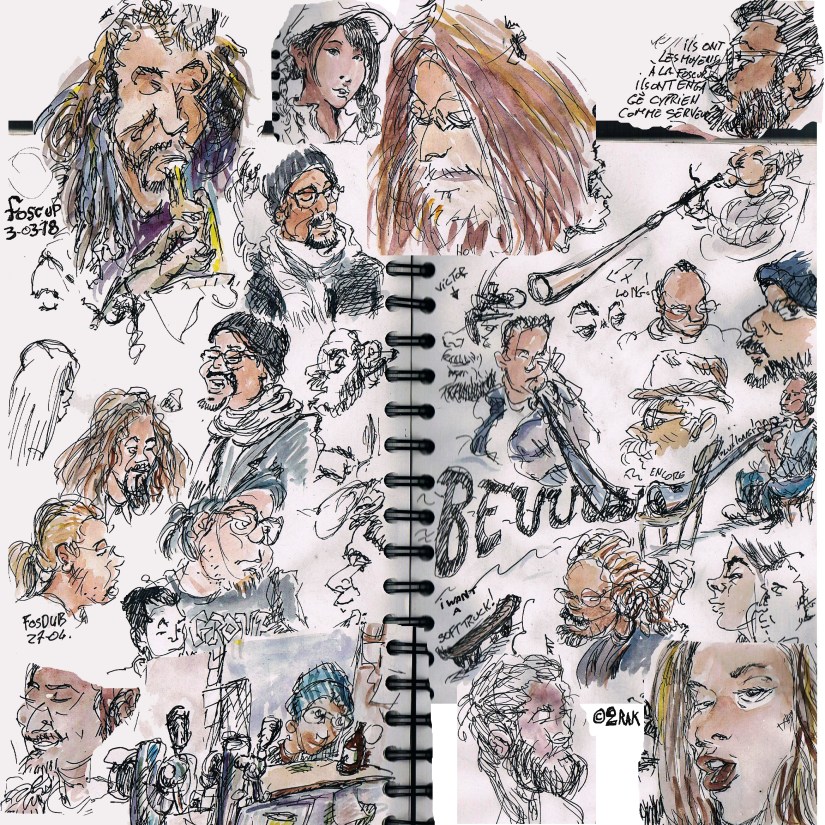 ILS ONT
LES MOYENS
À LA FOSCUP
ILS ONT ENGA
GÉ CYPRIEN
COMME SERVEUR
FOSCUP
3-03-18
VICTOR
LONG
ENCORE
BEUUU
I WANT
A
SOFTTRUCK!
FOSDUB
27.04.
©2RNK